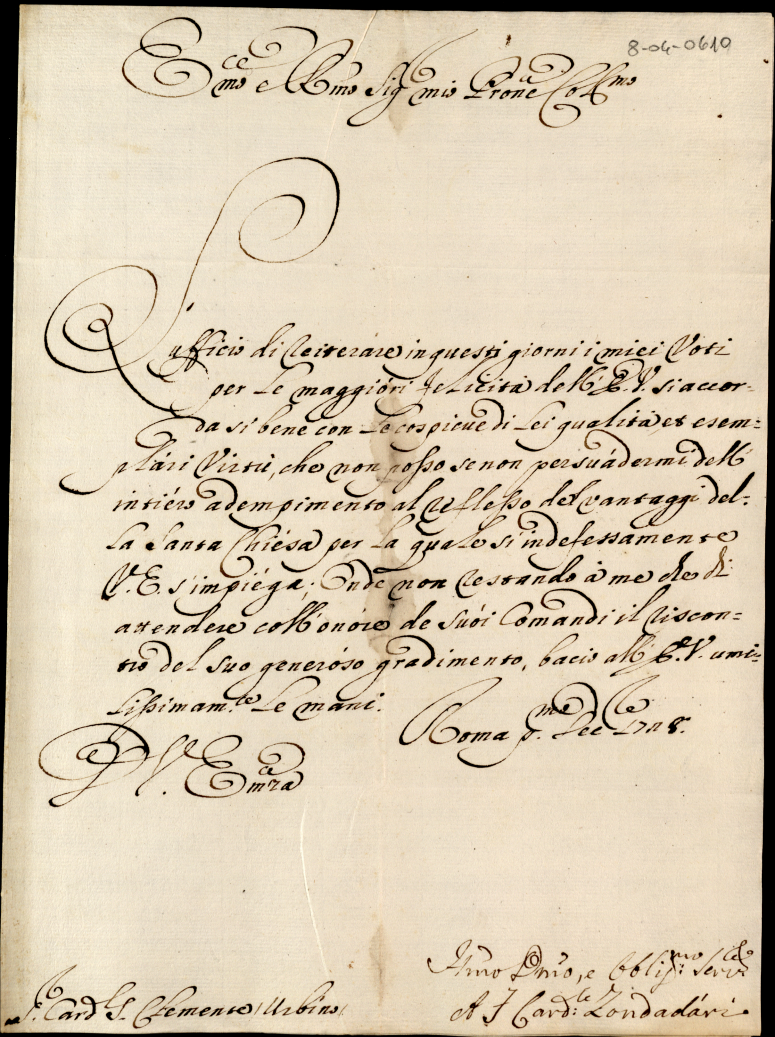 8-04-0610
Emo e Rmo Sig mio Prone Collmo
L'ufficio di reiterare in questi giorni i miei Voti
per le maggióri felicità dell'E.V. si accor-
da si bene con le cospicue di Lei qualità, et esem-
plári Virtù, che non posso se non persuádermi dell'
intiéro adempimento al reflesso de vantaggi del-
la Santa Chiésa per la quale si indefessamente
V.E. s'impiéga; Onde non restando à me che di
attendere coll'onóre de suói Comandi il riscon-
tro del suo generóso gradimento, bacio all'E.V. umi-
lissimam.te le mani.
Roma p.me Dec.re 1718.
D V. Emza
Hmo Dmo, e Obligmo: Serv.
S. Card. S. Clemente (Urbino)
A F Card:le Zondadári